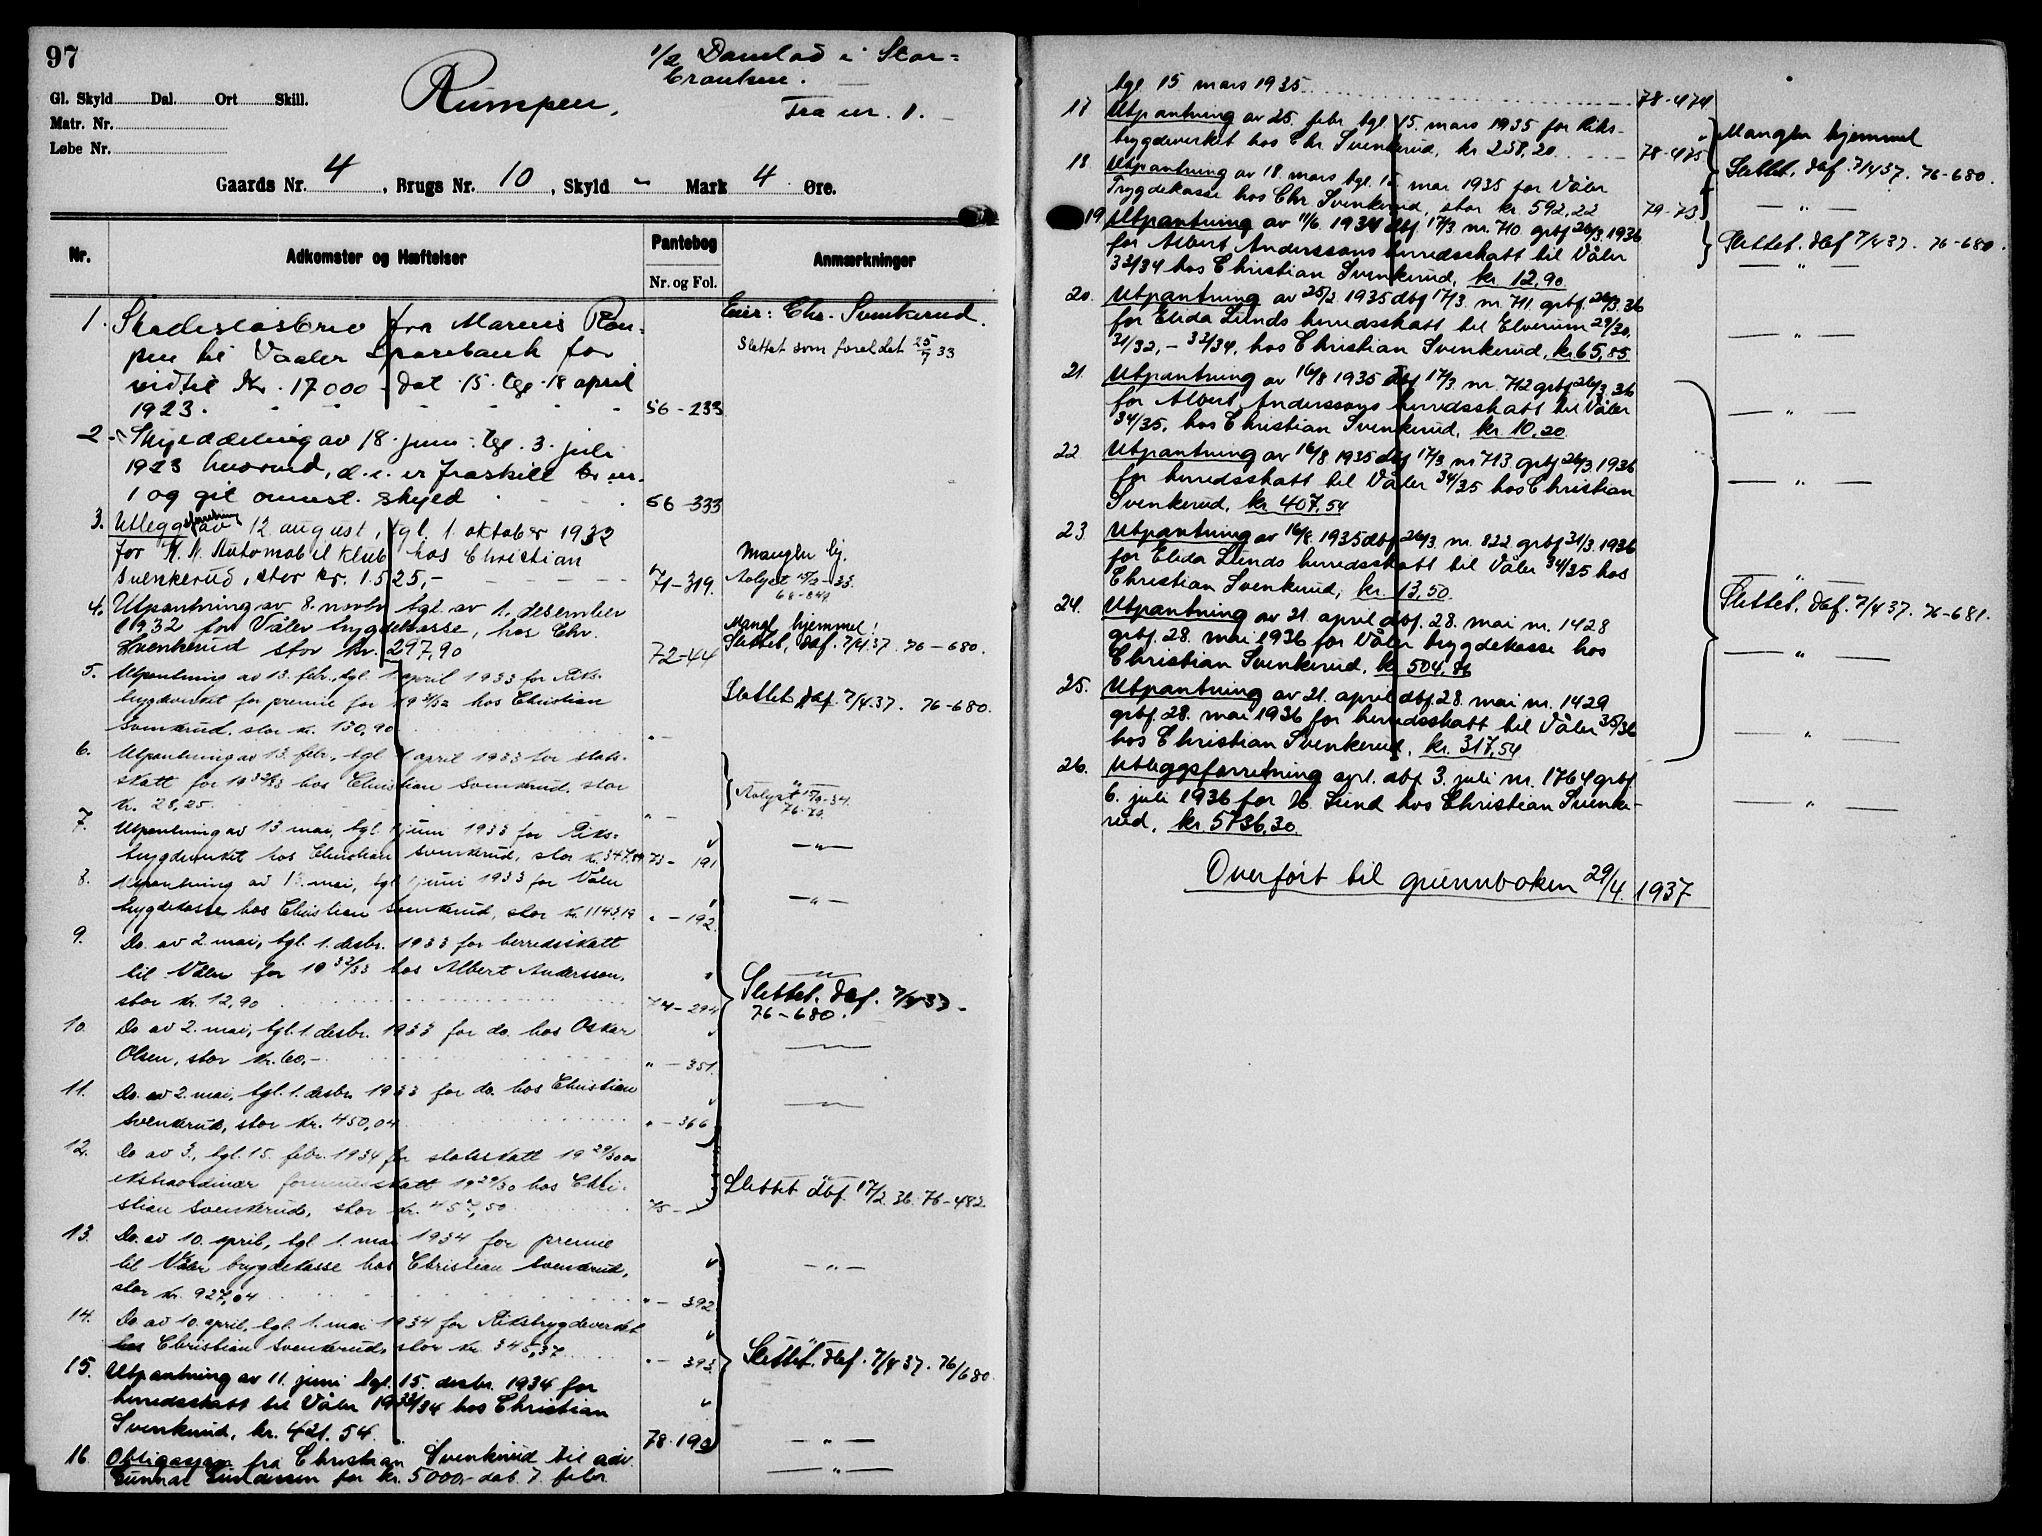 97
Rumpen,
1/2 Damlad i Stor=
Fra nr. 1.
Gl. Skyld Dal. Ort Skill.
Matr. Nr.
Løbe Nr.
Gaards Nr. 4, Brugs Nr. 10, Skyld " Mark 4 Øre.
Nr. Adkomster og Hæftelser Pantebog Anmærkninger
Nr. og Fol.
1. Skadesløsbrev fra Marius Rau- Eier: Chr. Svenkerud.
pen til Vaaler Sparebank for Slettet som foreldet 25/9 33
indtil Kr. 17000 dat. 15. tgl. 18 april
1923. 56-233
2. Skylddeling av 18. juni tgl. 3. juli
1923 hvorved d. e. er fraskilt br. nr.
1 og git anmst. skyld 56-333
3. Utleggsforretning av 12 august, tgl. 1. oktober 1932
for K. N. Automobil Klub hos Christian Mangler hj.
Svenkerud, stor kr. 1.525,- 71-319. Avlyst
4. Utpantning av 8. novbr. tgl. av 1. desember
1932 for Våler trygdekasse, hos Chr. Mangl. hjemmel!
Svenkerud stor kr. 297,90 72-44 Slettet, dbf. 7/4 37. 76-680.
5. Utpantning av 13. febr., tgl. 1. april 1933 for Riks-
trygdeverket for premie for 1931/32 hos Christian Slettet dbf. 7/4.37. 76-680.
Svenkerud, stor kr. 150,90 " -
6. Utpantning av 13. febr., tgl. 1 april 1933 for stats-
skatt for 1932/33 hos Christian Svenkerud, stor Avlyst
kr. 28,25. " -
7. Utpantning av 13. mai, tgl. 1 juni 1933 for Riks-
trygdeverket hos Christian Svenkerud, stor kr. 347,84 73-191 — " —
8. Utpantning av 13. mai, tgl. 1 juni 1933 for Våler
trygdekasse hos Christian Svenkerud, stor kr. 1143,19 " - 192 — " —
9. Do. av 2. mai, tgl. 1. desbr. 1933 for herredsskatt
til Våler for 1932/33 hos Albert Andersson, — " —
stor kr. 12,90 74-294 Slettet. dbf. 7/4 37.
76-680.
10. Do av 2. mai, tgl. 1. desbr. 1933 for do. hos Oskar
Olsen, stor kr. 60,- " - 351. — " —
11. Do. av 2. mai, tgl. 1. desbr. 1933 for do. hos Christian — " —
Svenkerud, stor kr. 450,04 " - 366
12. Do av 3., tgl. 15. febr. 1934 for statsskatt 1929/30 og
ekstraordinær formuesskatt 1929/30 hos Chri- Slettet dbf. 17/2. 36. 76-482.
stian Svenkerud, stor kr. 457,50 75-
13. Do. av 10. april, tgl. 1. mai 1934 for premie
til Våler trygdekasse hos Christian Svenkerud, — " —
stor kr. 927,04 " - 392
14. Do av 10. april, tgl. 1. mai 1934 for Rikstrygdeverket
hos Christian Svenkerud, stor kr. 345,37 " - 393 Slettet. dbf. 7/4 37. 76/680.
15. Utpantning av 11. juni tgl. 15. desbr. 1934 for
herredsskatt til Våler 1933/34 hos Christian
Svenkerud, kr. 421.54. 78.190 — " —
16. Obligasjon fra Christian Svenkerud til adv. — " —
Gunnar Gundersen for kr. 5000,- dat. 7. febr.
tgl. 15 mars 1935 78-474
17 Utpantning av 25. febr. tgl. 15. mars 1935 for Riks- Mangler hjemmel
trygdeverket hos Chr. Svenkerud, kr 258,20 78-475 Slettet. dbf. 7/4 37. 76-680.
18 Utpantning av 18. mars tgl. 15 mar 1935 for Våler
Trygdekasse hos Chr Svenkerud, stor kr. 592,22 79-73 — " —
19. Utpantning av 11/6 1934 dbf. 17/3 nr. 710 grbf 26/3.1936
for Albert Anderssons herredsskatt til Våler Slettet. dbf 7/4 37. 76-680.
33/34 hos Christian Svenkerud, kr 12,90. — " —
20. Utpantning av 25/2 1935 dbf 17/3. nr. 711. grbf. 26/3. 36
for Elida Lunds herredsskatt til Elverum 29/30,
31/32, - 33/34, hos Christian Svenkerud, kr 65,85 — " —
21. Utpantning av 16/8 1935 dbf 17/3. nr. 712 grbf 26/3 36
for Albert Anderssons herredsskatt til Våler — " —
34/35, hos Christian Svenkerud, kr 10,20
22 Utpantning av 16/8. 1935 dbf 17/3 nr 713. grbf 26/3 1936
for herredsskatt til Våler 34/35 hos Christian — " —
Svenkerud, kr 407,54
23 Utpantning av 16/8. 1935 dbf 26/3. nr. 822 grbf 31/3. 1936
for Elida Lunds herredsskatt til Våler 34/35 hos — " —
Christian Svenkerud, kr. 13,50. Slettet. dbf. 7/4 37. 76-681.
24. Utpantning av 21. april dbf. 28. mai nr. 1428
grbf. 28. mai 1936 for Våler trygdekasse hos — " —
Christian Svenkerud. kr 504,86
25. Utpantning av 21. april dbf. 28. mai nr. 1429
grbf. 28. mai 1936 for herredsskatt til Våler 35/36
hos Christian Svenkerud, kr. 317,54 — " —
26. Utleggsforretning dbf. 3. juli nr. 1764 grbf
6. juli 1936 for H. Lund hos Christian Svenke- — " —
rud, kr 5736,30
Overført til grunnboken 29/4. 1937